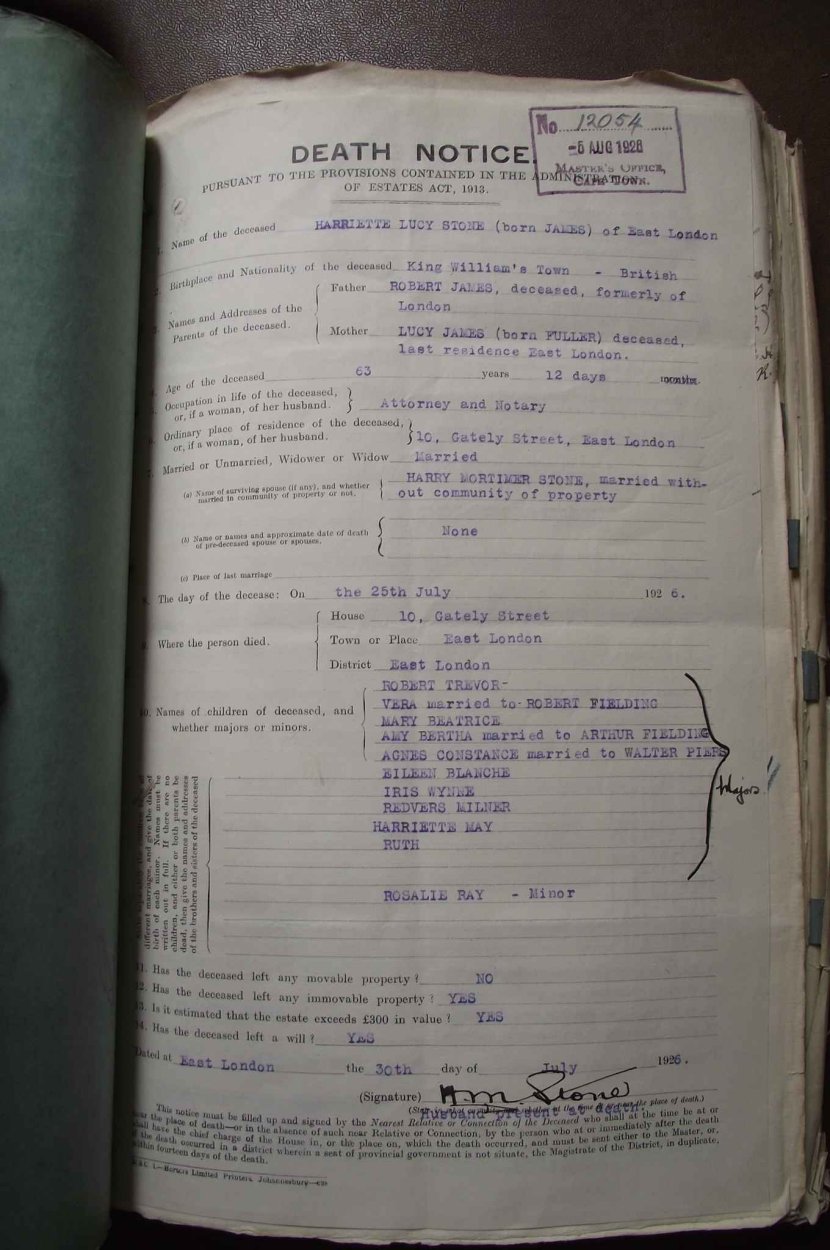 No 12054
-5 AUG 1926
MASTER'S OFFICE,
CAPE TOWN.
DEATH NOTICE.
PURSUANT TO THE PROVISIONS CONTAINED IN THE ADMINISTRATION
OF ESTATES ACT, 1913.
1. Name of the deceased HARRIETTE LUCY STONE (born JAMES) of East London
2. Birthplace and Nationality of the deceased King William's Town - British
3. Names and Addresses of the Parents of the deceased.
Father ROBERT JAMES, deceased, formerly of
London
Mother LUCY JAMES (born FULLER) deceased,
last residence East London.
Age of the deceased 63 years 12 days months.
Occupation in life of the deceased,
or, if a woman, of her husband. Attorney and Notary
Ordinary place of residence of the deceased,
or, if a woman, of her husband. 10, Gately Street, East London
7. Married or Unmarried, Widower or Widow Married
(a) Name of surviving spouse (if any), and whether HARRY MORTIMER STONE, married with-
married in community of property or not. out community of property
(b) Name or names and approximate date of death None
of pre-deceased spouse or spouses.
(c) Place of last marriage
8. The day of the decease: On the 25th July 1926.
House 10, Gately Street
9. Where the person died. Town or Place East London
District East London
ROBERT TREVOR-
VERA married to- ROBERT FIELDING
10. Names of children of deceased, and MARY BEATRICE
whether majors or minors. AMY BERTHA married to ARTHUR FIELDING
AGNES CONSTANCE married to WALTER PIERS
EILEEN BLANCHE
IRIS WYNNE
REDVERS MILNER
HARRIETTE MAY
RUTH
Majors
ROSALIE RAY - Minor
different marriages, and give the date of
birth of each minor. Names must be
written out in full. If there are no
children, and either or both parents be
dead, then give the names and addresses
of the brothers and sisters of the deceased
11. Has the deceased left any movable property? NO
12. Has the deceased left any immovable property? YES
13. Is it estimated that the estate exceeds £300 in value? YES
14. Has the deceased left a will? YES
Dated at East London the 30th day of July 1926.
(Signature) H M Stone
Husband present at death.
at the time of or near the place of death.)
This notice must be filled up and signed by the Nearest Relative or Connection of the Deceased who shall at the time be at or
near the place of death—or in the absence of such near Relative or Connection, by the person who at or immediately after the death
shall have the chief charge of the House in, or the place on, which the death occurred, and must be sent either to the Master, or,
if the death occurred in a district wherein a seat of provincial government is not situate, the Magistrate of the District, in duplicate,
within fourteen days of the death.
Limited Printers, Johannesburg